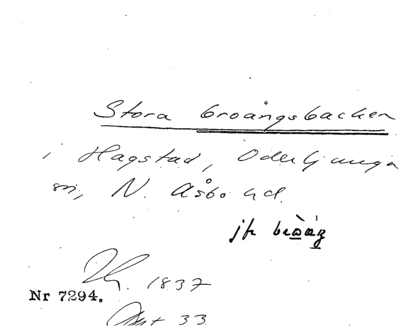 Stora broångsbacken
i Hagstad, Oderljunga
sn, N. Åsbo hd.
jfr broäng
1837
Nr 7294.
Akt 33